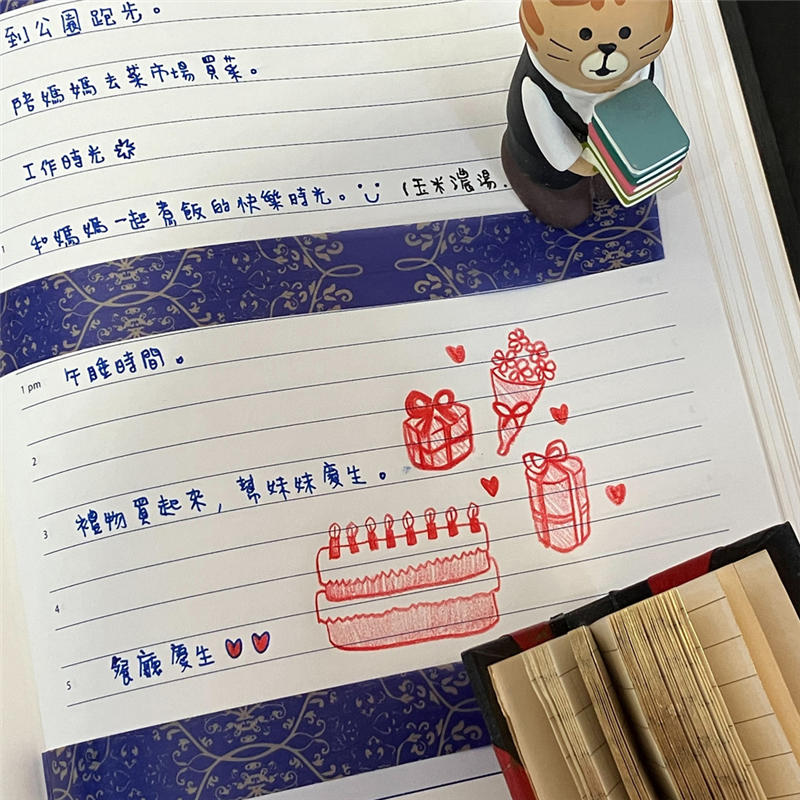 到公園跑步。
陪媽媽去菜市場買菜。
工作時光
和媽媽一起煮飯的快樂時光。 (玉米濃湯.
1
1 pm 午睡時間。
2
3 禮物買起來,幫妹妹慶生。
4
5 餐廳慶生